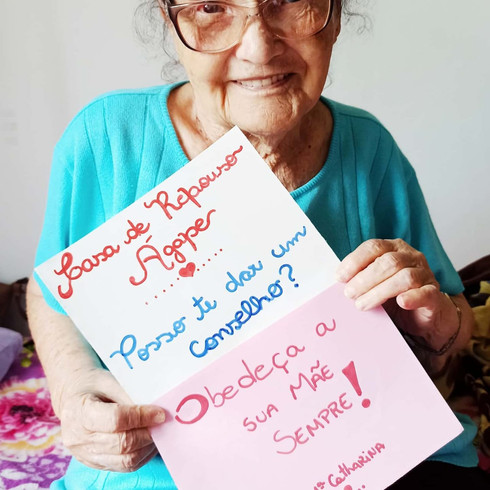 Casa de Repouso
Ágape
Posso te dar um
conselho?
Obedeça a
sua Mãe
Sempre!
Mª Catharina